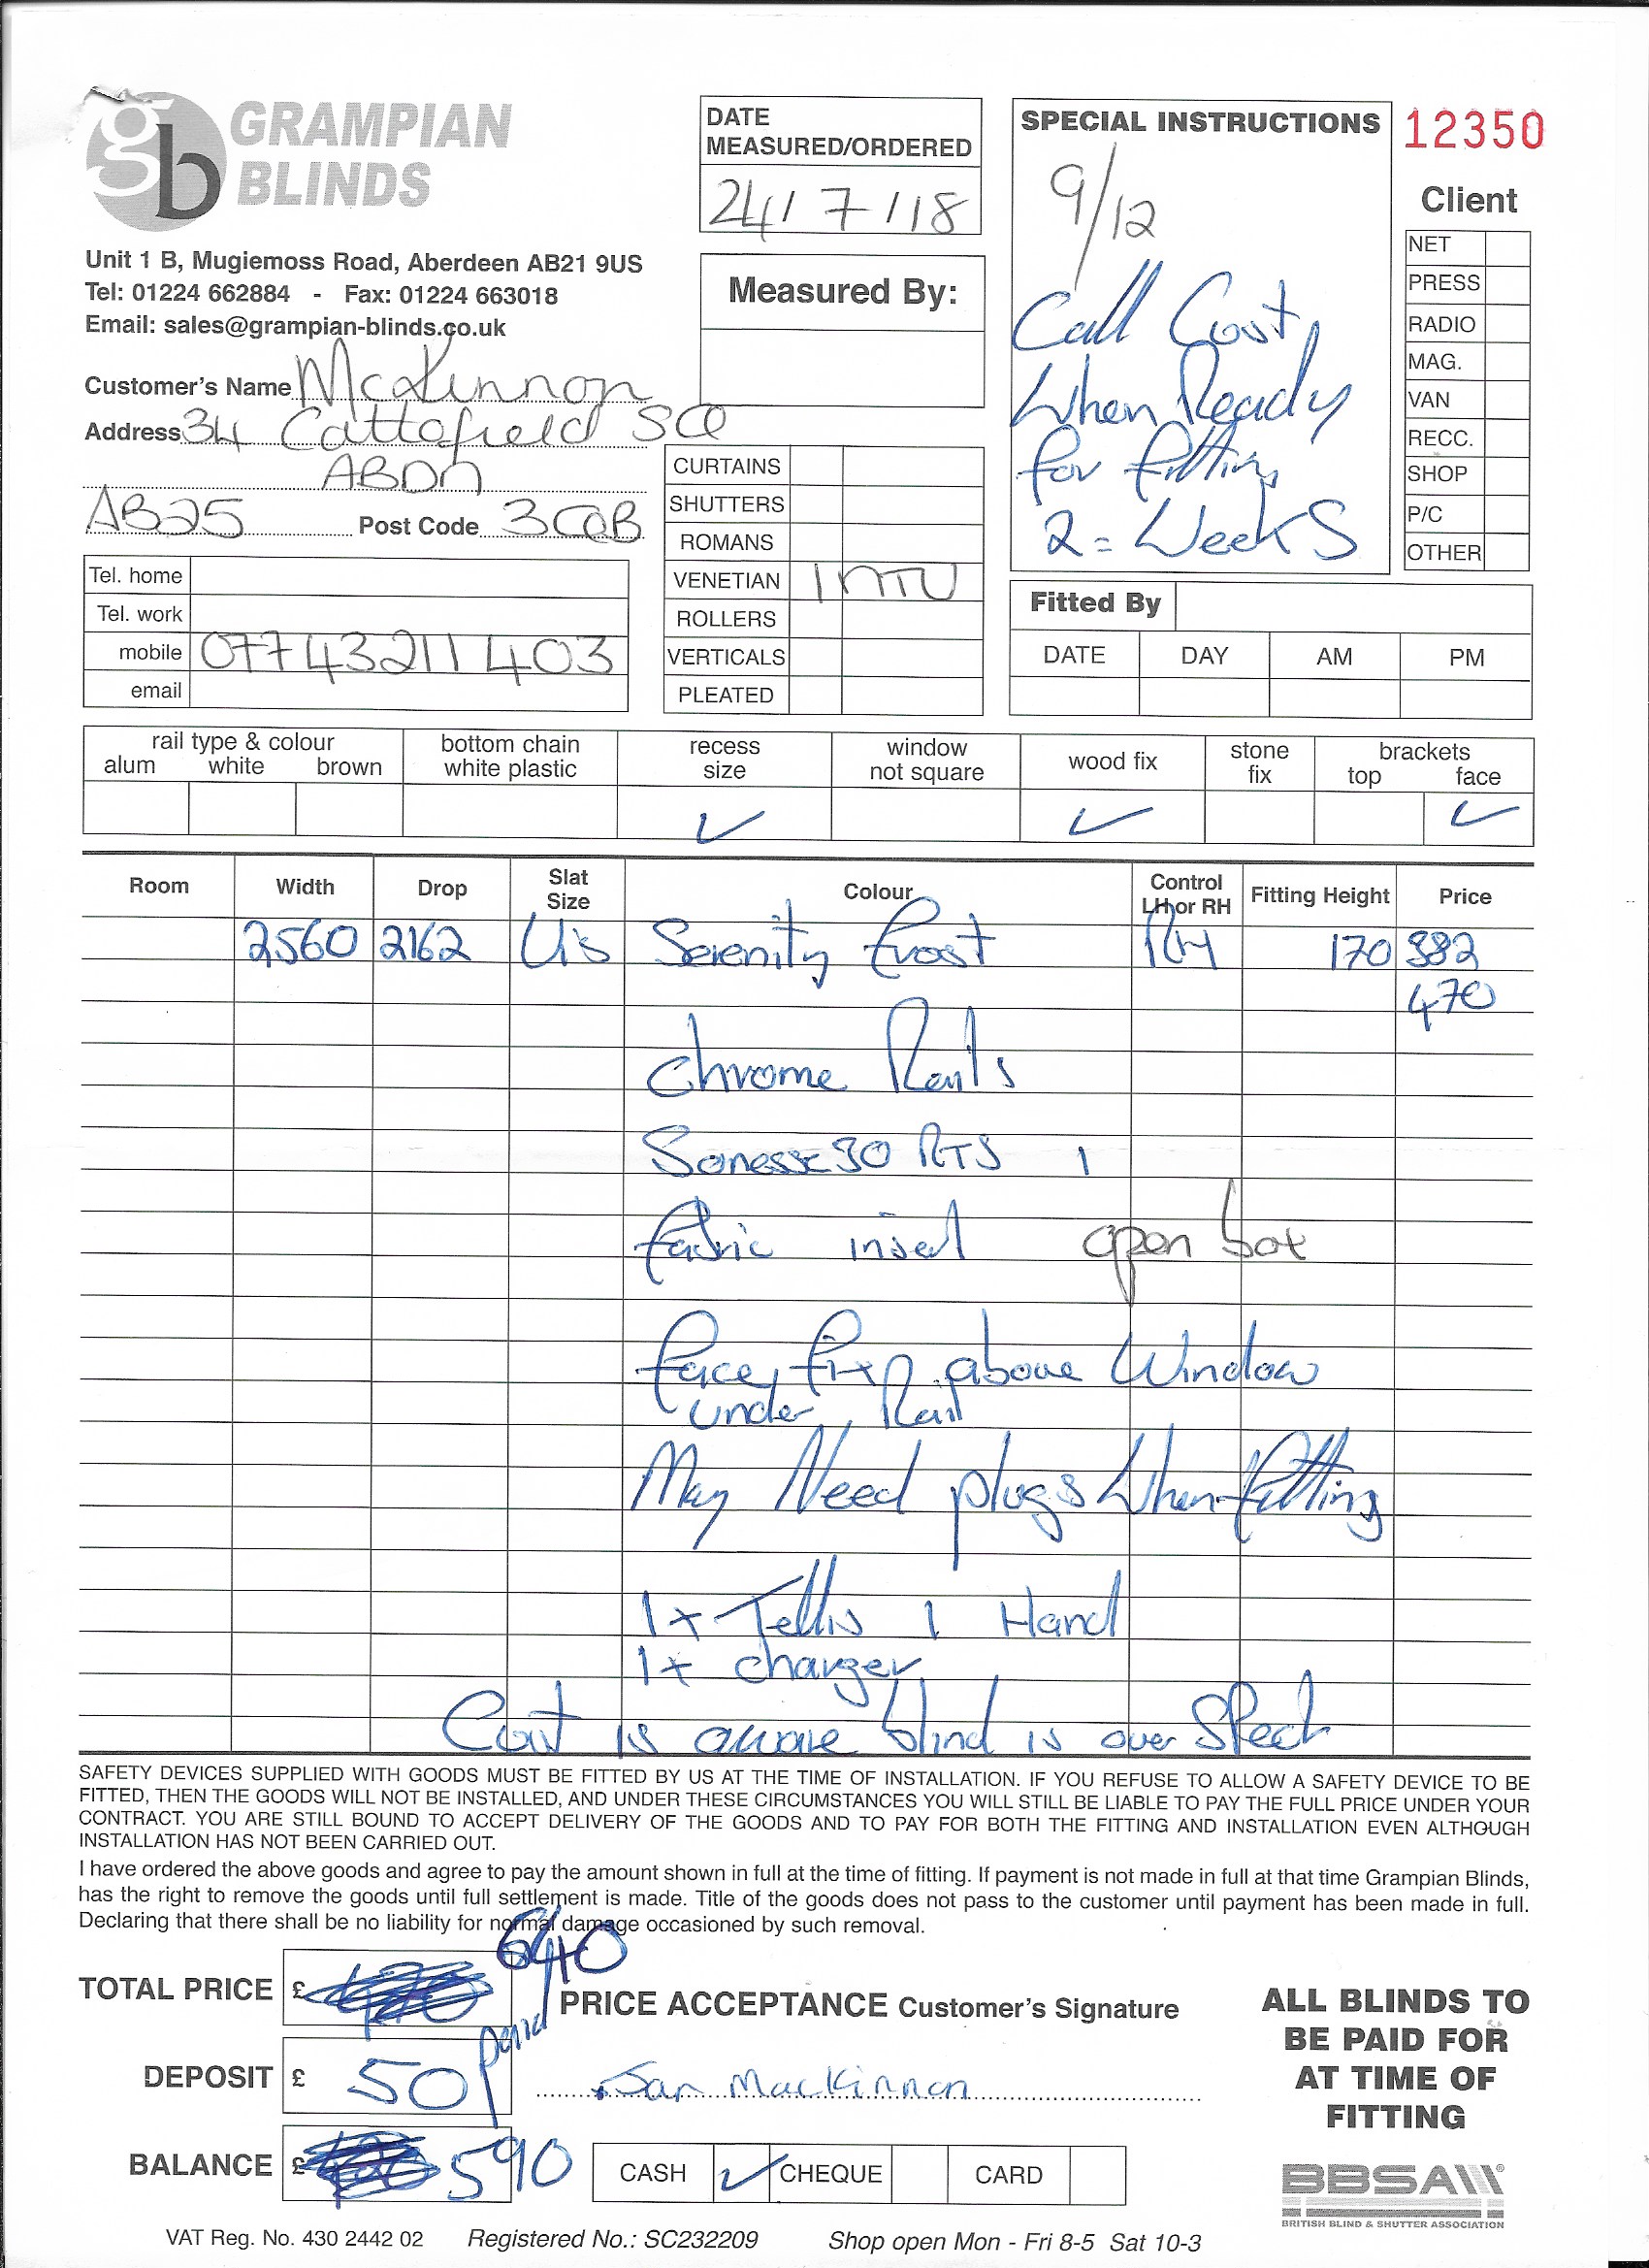 GRAMPIAN
BLINDS
Unit 1 B, Mugiemoss Road, Aberdeen AB21 9US
Tel: 01224 662884 - Fax: 01224 663018
Email: sales@grampian-blinds.co.uk
Customer's Name McKinnon
Address 34 Cattofield SQ
ABDN
AB25 Post Code 3QB
Tel. home
Tel. work
mobile 07743211403
email
DATE
MEASURED/ORDERED
24/7/18
Measured By:
CURTAINS
SHUTTERS
ROMANS
VENETIAN INTU
ROLLERS
VERTICALS
PLEATED
SPECIAL INSTRUCTIONS
9/12
Call Cust
When Ready
for fitting
2 = Weeks
12350
Client
NET
PRESS
RADIO
MAG.
VAN
RECC.
SHOP
P/C
OTHER
Fitted By
DATE DAY AM PM
rail type & colour
alum white brown
bottom chain
white plastic
recess
size
window
not square
wood fix
stone
fix
brackets
top face
✓ ✓ ✓
Room Width Drop Slat Size Colour Control LH or RH Fitting Height Price
2560 2162 Serenity frost RH 170 382
470
Chrome Rails
Sonesse 30 RTS 1
fabric insert open box
face fix above Window
under Rail
May Need plugs When fitting
1x Tellis 1 Hand
1x charger
Cust is aware blind is over Spect
SAFETY DEVICES SUPPLIED WITH GOODS MUST BE FITTED BY US AT THE TIME OF INSTALLATION. IF YOU REFUSE TO ALLOW A SAFETY DEVICE TO BE
FITTED, THEN THE GOODS WILL NOT BE INSTALLED, AND UNDER THESE CIRCUMSTANCES YOU WILL STILL BE LIABLE TO PAY THE FULL PRICE UNDER YOUR
CONTRACT. YOU ARE STILL BOUND TO ACCEPT DELIVERY OF THE GOODS AND TO PAY FOR BOTH THE FITTING AND INSTALLATION EVEN ALTHOUGH
INSTALLATION HAS NOT BEEN CARRIED OUT.
I have ordered the above goods and agree to pay the amount shown in full at the time of fitting. If payment is not made in full at that time Grampian Blinds,
has the right to remove the goods until full settlement is made. Title of the goods does not pass to the customer until payment has been made in full.
Declaring that there shall be no liability for normal damage occasioned by such removal.
TOTAL PRICE £ 640
DEPOSIT £ 50 paid
BALANCE £ 590
PRICE ACCEPTANCE Customer's Signature
San Mackinnon
CASH ✓ CHEQUE CARD
ALL BLINDS TO
BE PAID FOR
AT TIME OF
FITTING
BBSA
BRITISH BLIND & SHUTTER ASSOCIATION
VAT Reg. No. 430 2442 02 Registered No.: SC232209 Shop open Mon - Fri 8-5 Sat 10-3